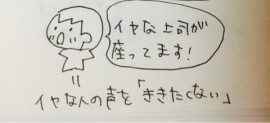 イヤな上司が
座ってます!
イヤな人の声を「ききたくない」